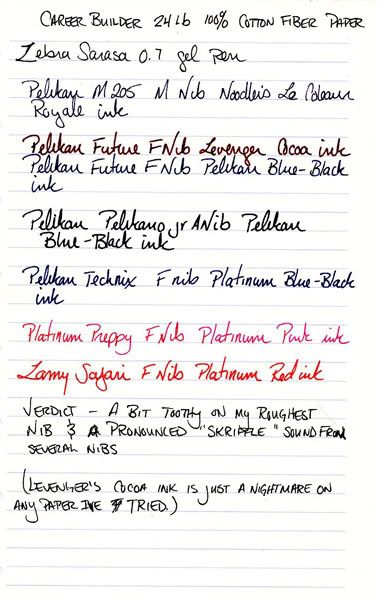 CAREER BUILDER 24 Lb 100% COTTON FIBER PAPER
Zebra Sarasa 0.7 gel pen
Pelikan M205 M Nib Noodler's La Coleur
Royale ink
Pelikan Future F Nib Levenger Cocoa ink
Pelikan Future F Nib Pelikan Blue-Black
ink
Pelikan Pelikano jr A Nib Pelikan
Blue-Black ink
Pelikan Technix F nib Platinum Blue-Black
ink
Platinum Preppy F Nib Platinum Pink ink
Lamy Safari F Nib Platinum Red ink
VERDICT - A BIT TOOTHY ON MY ROUGHEST
NIB & A PRONOUNCED "SKRIFFLE" SOUND FROM
SEVERAL NIBS
(LEVENGER'S COCOA INK IS JUST A NIGHTMARE ON
ANY PAPER IVE TRIED.)